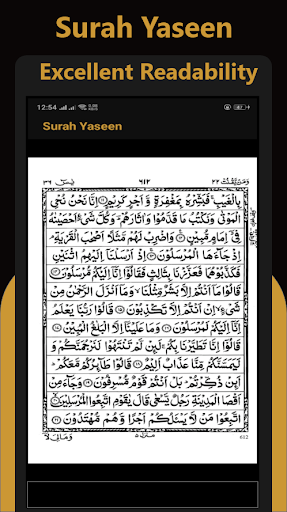 Surah Yaseen
Excellent Readability
12:54
Surah Yaseen
وَمَنْ يَّقْنُتْ ٢٢ ٦١٢ يٰسٓ ٣٦
بِالْغَيْبِ ۚ فَبَشِّرْهُ بِمَغْفِرَةٍ وَّاَجْرٍ كَرِيْمٍ ⑪ اِنَّا نَحْنُ نُحْيِ
الْمَوْتٰى وَنَكْتُبُ مَا قَدَّمُوْا وَاٰثَارَهُمْ ۚ وَكُلَّ شَيْءٍ اَحْصَيْنٰهُ
فِيْٓ اِمَامٍ مُّبِيْنٍ ⑫ وَاضْرِبْ لَهُمْ مَّثَلًا اَصْحٰبَ الْقَرْيَةِ ۘ
اِذْ جَآءَهَا الْمُرْسَلُوْنَ ⑬ اِذْ اَرْسَلْنَآ اِلَيْهِمُ اثْنَيْنِ
فَكَذَّبُوْهُمَا فَعَزَّزْنَا بِثَالِثٍ فَقَالُوْٓا اِنَّآ اِلَيْكُمْ مُّرْسَلُوْنَ ⑭
قَالُوْا مَآ اَنْتُمْ اِلَّا بَشَرٌ مِّثْلُنَا ۙ وَمَآ اَنْزَلَ الرَّحْمٰنُ مِنْ
شَيْءٍ ۙ اِنْ اَنْتُمْ اِلَّا تَكْذِبُوْنَ ⑮ قَالُوْا رَبُّنَا يَعْلَمُ
اِنَّآ اِلَيْكُمْ لَمُرْسَلُوْنَ ⑯ وَمَا عَلَيْنَآ اِلَّا الْبَلٰغُ الْمُبِيْنُ ⑰
قَالُوْٓا اِنَّا تَطَيَّرْنَا بِكُمْ ۚ لَئِنْ لَّمْ تَنْتَهُوْا لَنَرْجُمَنَّكُمْ
وَلَيَمَسَّنَّكُمْ مِّنَّا عَذَابٌ اَلِيْمٌ ⑱ قَالُوْا طَآئِرُكُمْ مَّعَكُمْ ۭ
اَئِنْ ذُكِّرْتُمْ ۭ بَلْ اَنْتُمْ قَوْمٌ مُّسْرِفُوْنَ ⑲ وَجَآءَ مِنْ
اَقْصَا الْمَدِيْنَةِ رَجُلٌ يَّسْعٰى قَالَ يٰقَوْمِ اتَّبِعُوا الْمُرْسَلِيْنَ ⑳
اتَّبِعُوْا مَنْ لَّا يَسْـَٔلُكُمْ اَجْرًا وَّهُمْ مُّهْتَدُوْنَ ㉑
وَمَالِيَ لَآ منزل ٥ 612